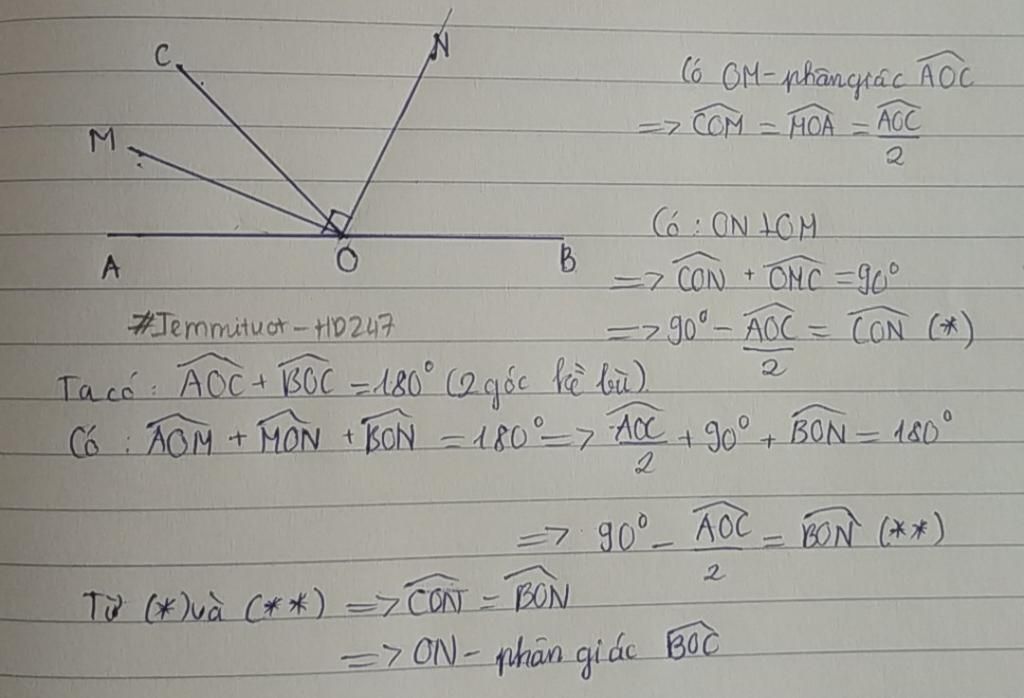 C
N
M
A
O
B
Có OM-phân giác \widehat{AOC}
=> \widehat{COM} = \widehat{MOA} = \frac{\widehat{AOC}}{2}
Có : ON ⊥ OM
=> \widehat{CON} + \widehat{OMC} = 90°
=> 90° - \frac{\widehat{AOC}}{2} = \widehat{CON} (*)
#Jemmituot-HD247
Ta có : \widehat{AOC} + \widehat{BOC} = 180° (2 góc kề bù)
Có : \widehat{AOM} + \widehat{MON} + \widehat{BON} = 180° => \frac{\widehat{AOC}}{2} + 90° + \widehat{BON} = 180°
=> 90° - \frac{\widehat{AOC}}{2} = \widehat{BON} (**)
Từ (*) và (**) => \widehat{CON} = \widehat{BON}
=> ON - phân giác \widehat{BOC}